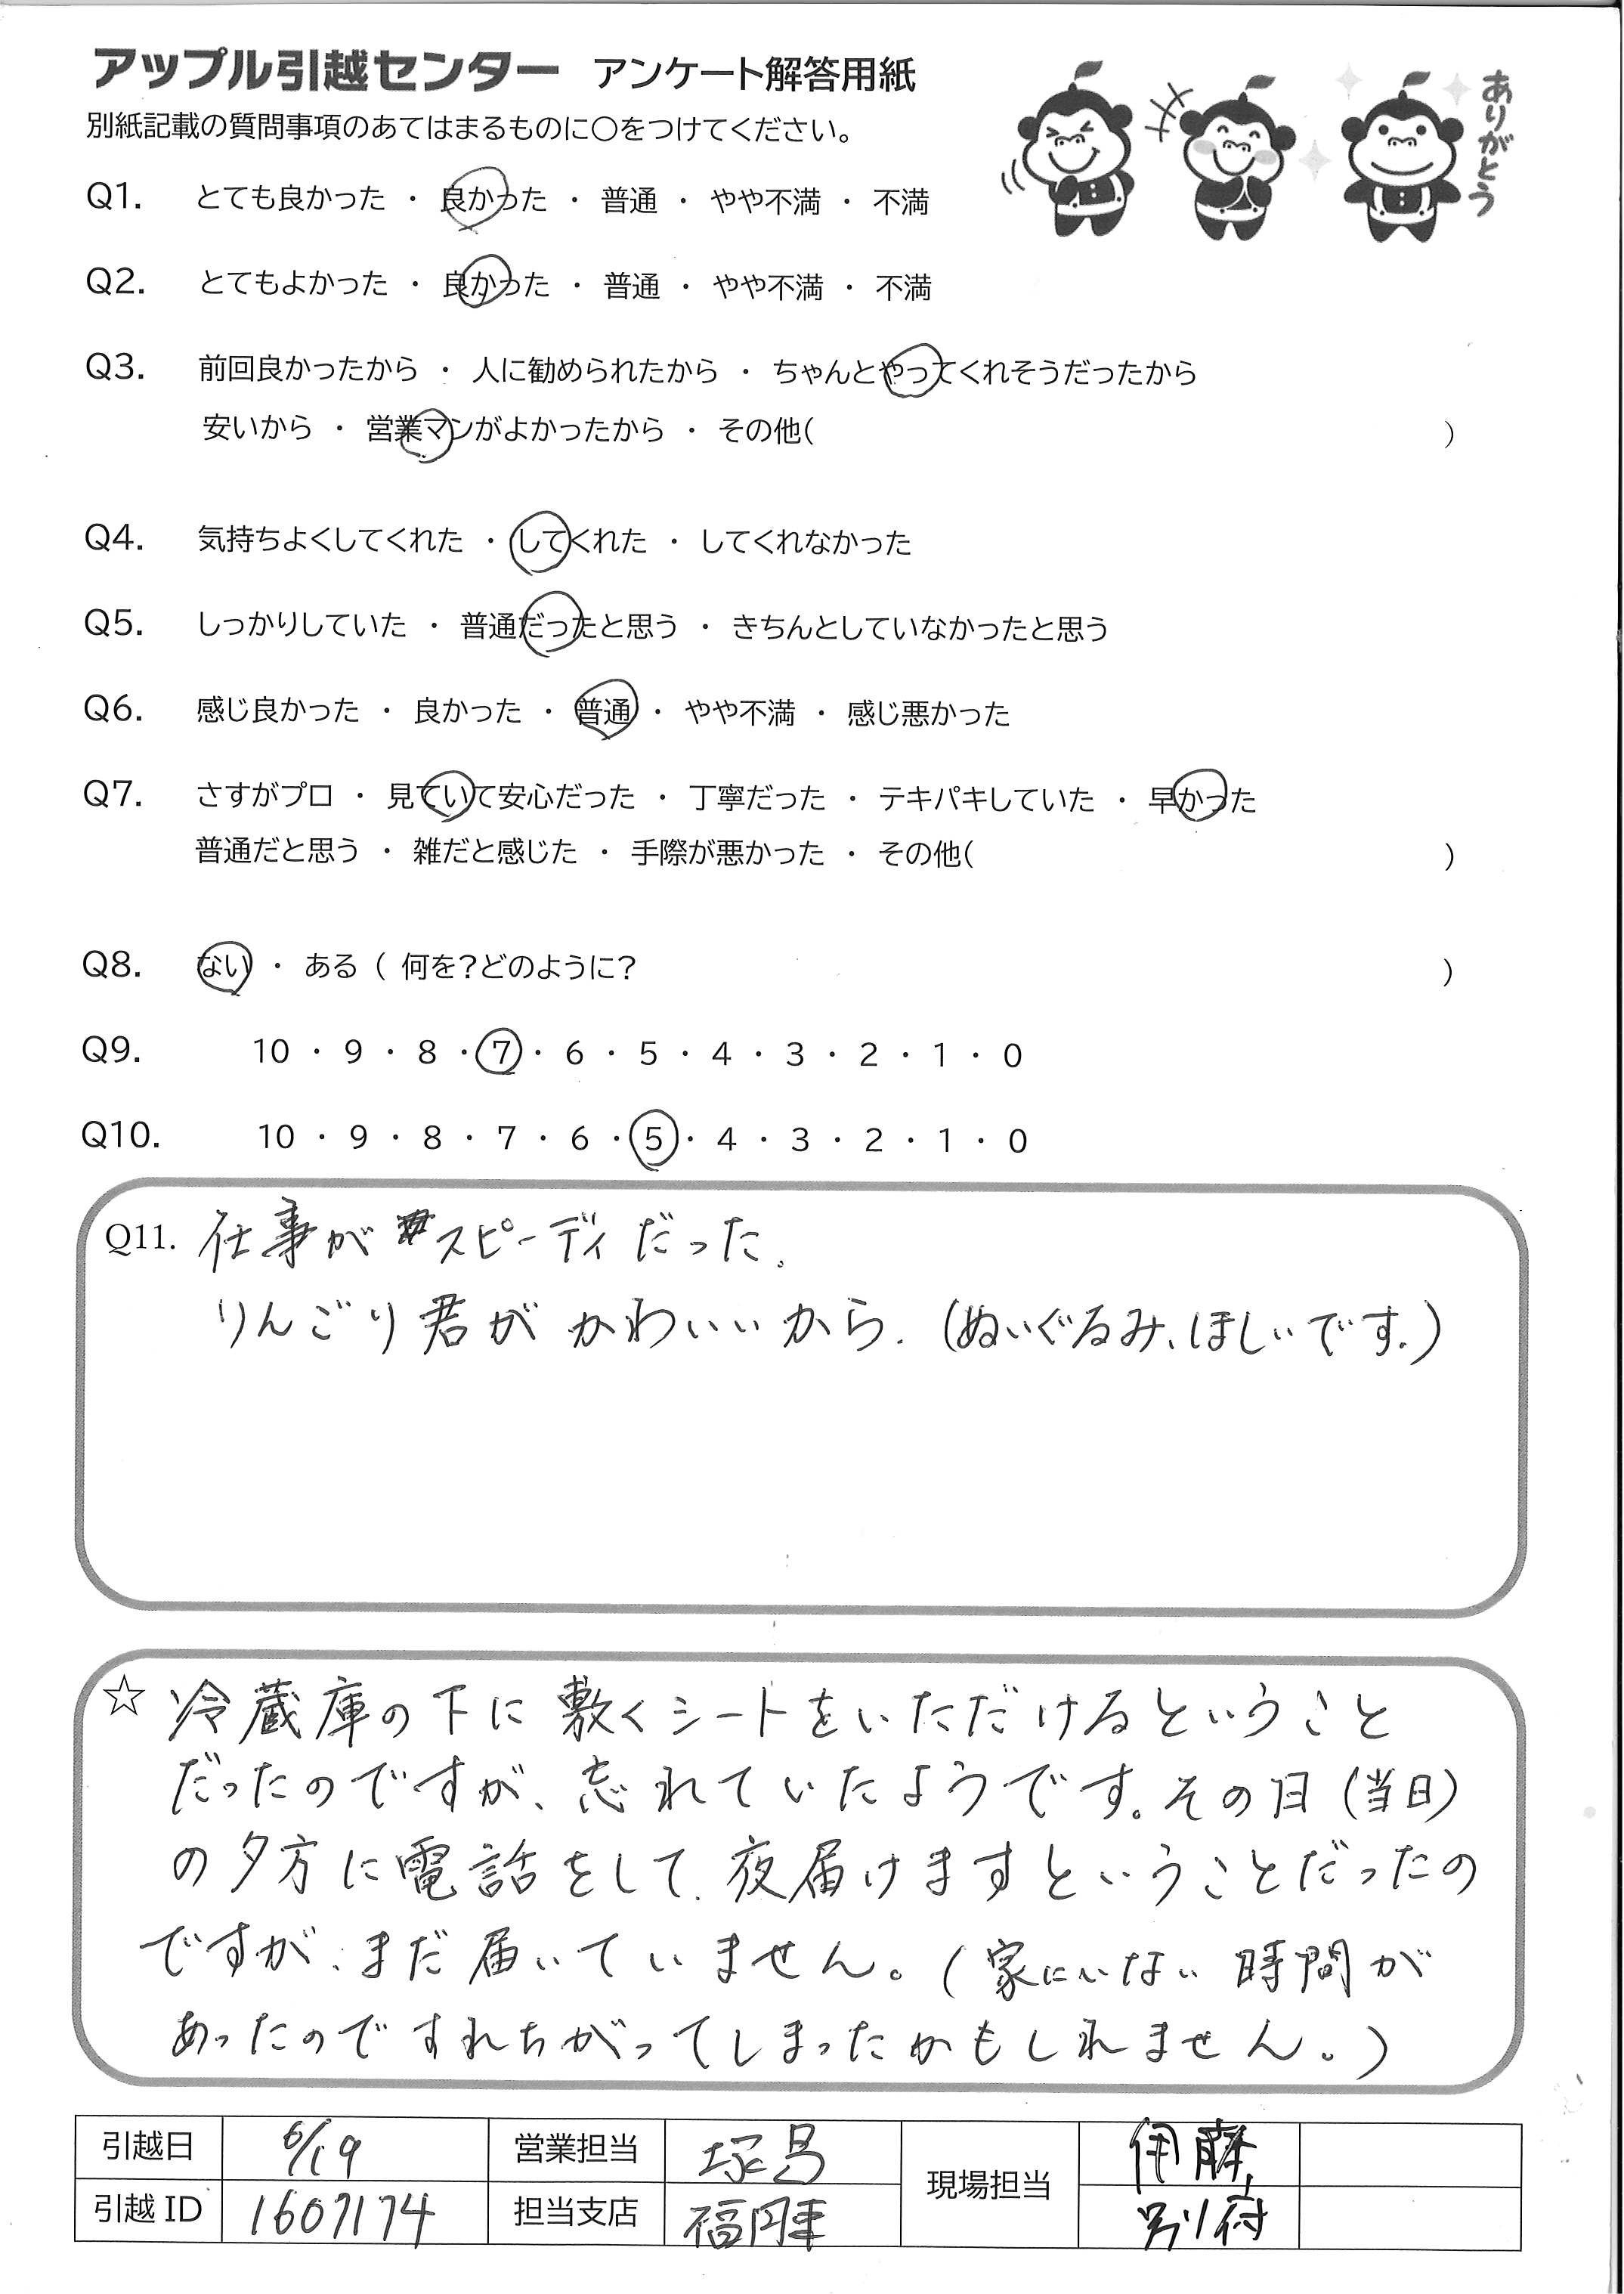 アップル引越センター アンケート解答用紙
別紙記載の質問事項のあてはまるものに○をつけてください。
ありがとう
Q1. とても良かった ・ 良かった ・ 普通 ・ やや不満 ・ 不満
Q2. とてもよかった ・ 良かった ・ 普通 ・ やや不満 ・ 不満
Q3. 前回良かったから ・ 人に勧められたから ・ ちゃんとやってくれそうだったから
安いから ・ 営業マンがよかったから ・ その他( )
Q4. 気持ちよくしてくれた ・ してくれた ・ してくれなかった
Q5. しっかりしていた ・ 普通だったと思う ・ きちんとしていなかったと思う
Q6. 感じ良かった ・ 良かった ・ 普通 ・ やや不満 ・ 感じ悪かった
Q7. さすがプロ ・ 見ていて安心だった ・ 丁寧だった ・ テキパキしていた ・ 早かった
普通だと思う ・ 雑だと感じた ・ 手際が悪かった ・ その他( )
Q8. ない ・ ある ( 何を?どのように? )
Q9. 10 ・ 9 ・ 8 ・ 7 ・ 6 ・ 5 ・ 4 ・ 3 ・ 2 ・ 1 ・ 0
Q10. 10 ・ 9 ・ 8 ・ 7 ・ 6 ・ 5 ・ 4 ・ 3 ・ 2 ・ 1 ・ 0
Q11. 仕事がスピーディだった。
りんごり君がかわいいから.(ぬいぐるみ、ほしいです.)
☆ 冷蔵庫の下に敷くシートをいただけるということ
だったのですが、忘れていたようです。その日(当日)
の夕方に電話をして、夜届けますということだったの
ですが、まだ届いていません。(家にいない時間が
あったのですれちがってしまったかもしれません。)
引越日 6/19 営業担当 現場担当 伊藤
引越ID 1607174 担当支店 福岡東 別府